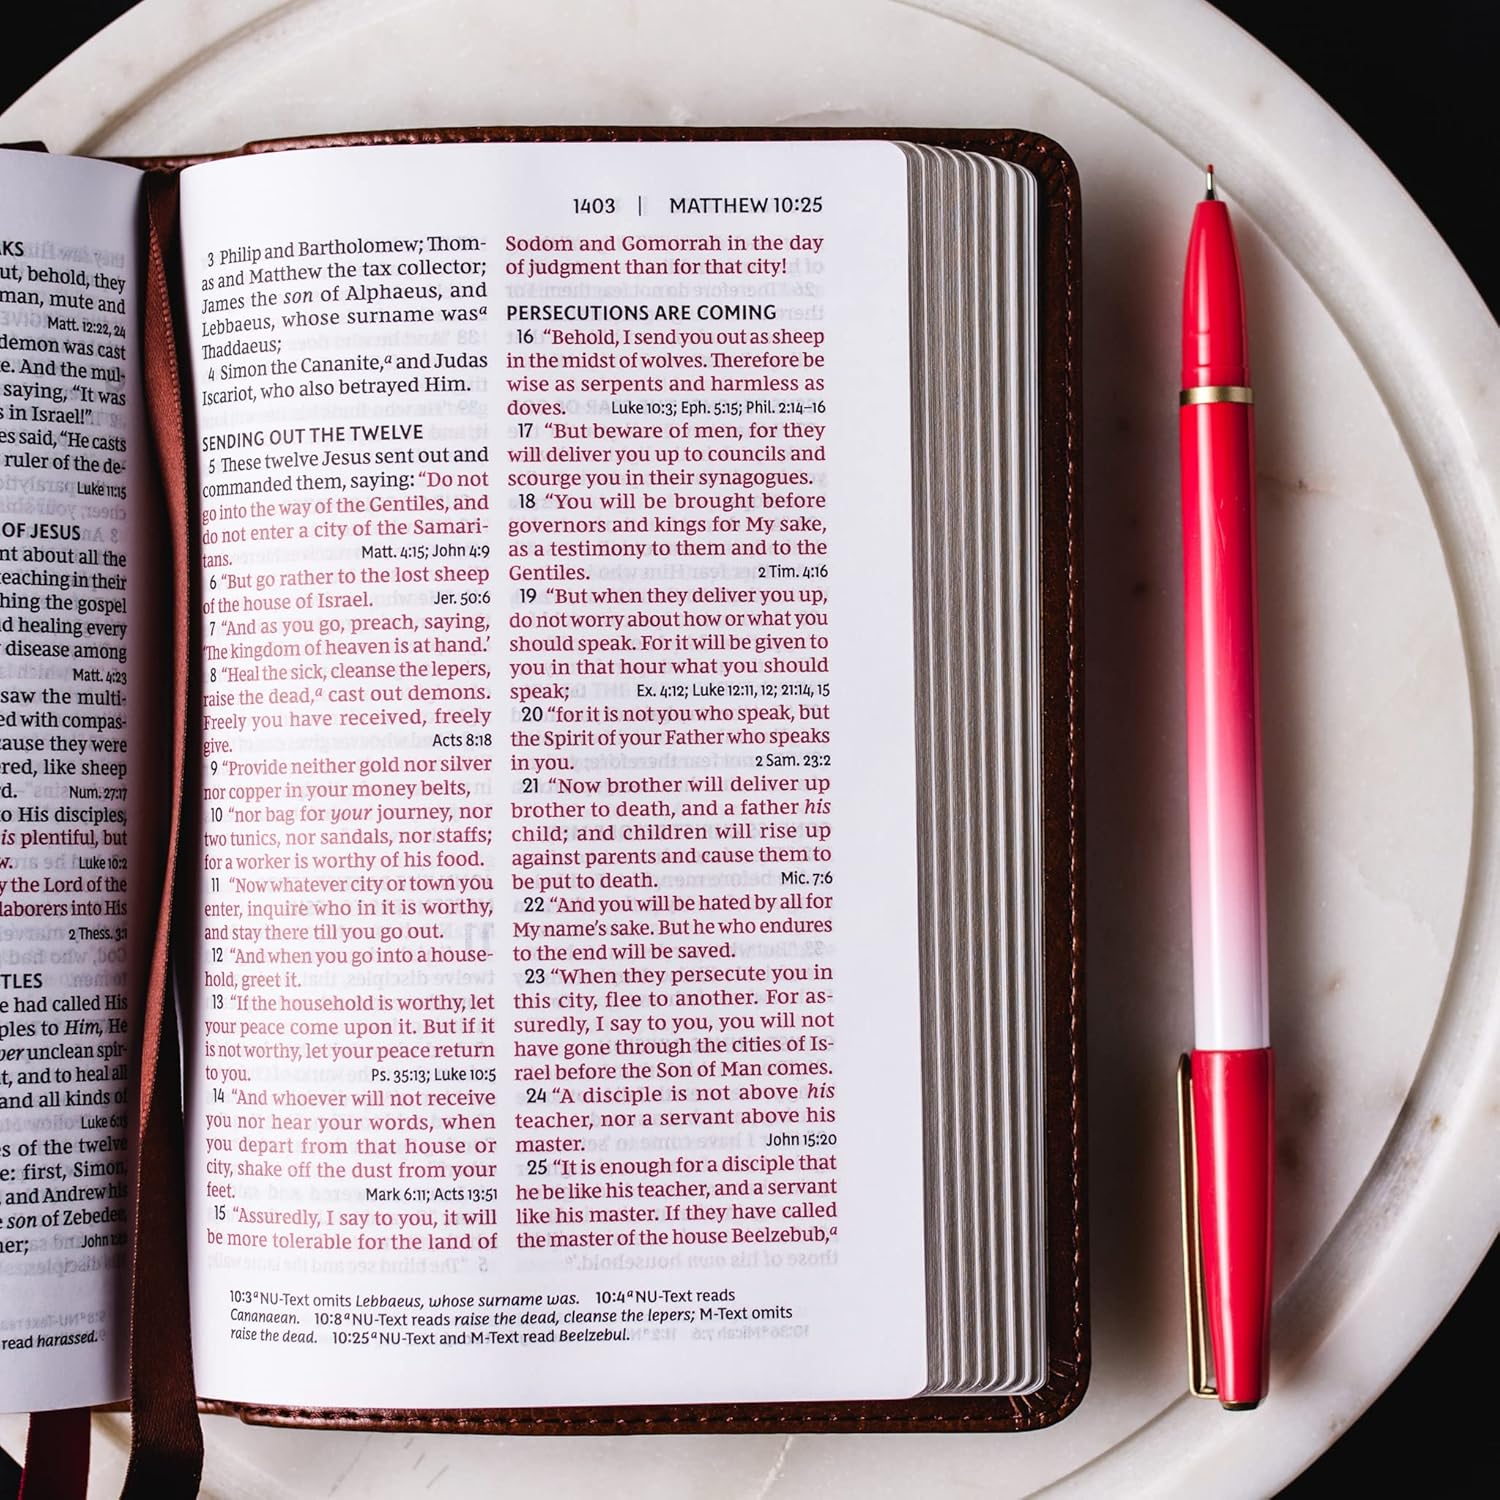 AKS
ut, behold, they
man, mute and
Matt. 12:22, 24
demon was cast
e. And the mul-
saying, “It was
s in Israel!”
es said, “He casts
ruler of the de-
Luke 11:15
OF JESUS
nt about all the
teaching in their
hing the gospel
d healing every
disease among
Matt. 4:23
saw the multi-
ed with compas-
cause they were
ered, like sheep
rd. Num. 27:17
o His disciples,
is plentiful, but
w. Luke 10:2
y the Lord of the
laborers into His
2 Thess. 3:1
TLES
e had called His
ples to Him, He
per unclean spir-
t, and to heal all
and all kinds of
Luke 6:13
es of the twelve
e: first, Simon,
, and Andrew his
e son of Zebedee,
her; John 1:42
read harassed.
1403 | MATTHEW 10:25
3 Philip and Bartholomew; Thom-
as and Matthew the tax collector;
James the son of Alphaeus, and
Lebbaeus, whose surname wasª
Thaddaeus;
4 Simon the Cananite,ª and Judas
Iscariot, who also betrayed Him.
SENDING OUT THE TWELVE
5 These twelve Jesus sent out and
commanded them, saying: “Do not
go into the way of the Gentiles, and
do not enter a city of the Samari-
tans. Matt. 4:15; John 4:9
6 “But go rather to the lost sheep
of the house of Israel. Jer. 50:6
7 “And as you go, preach, saying,
‘The kingdom of heaven is at hand.’
8 “Heal the sick, cleanse the lepers,
raise the dead,ª cast out demons.
Freely you have received, freely
give. Acts 8:18
9 “Provide neither gold nor silver
nor copper in your money belts,
10 “nor bag for your journey, nor
two tunics, nor sandals, nor staffs;
for a worker is worthy of his food.
11 “Now whatever city or town you
enter, inquire who in it is worthy,
and stay there till you go out.
12 “And when you go into a house-
hold, greet it.
13 “If the household is worthy, let
your peace come upon it. But if it
is not worthy, let your peace return
to you. Ps. 35:13; Luke 10:5
14 “And whoever will not receive
you nor hear your words, when
you depart from that house or
city, shake off the dust from your
feet. Mark 6:11; Acts 13:51
15 “Assuredly, I say to you, it will
be more tolerable for the land of
Sodom and Gomorrah in the day
of judgment than for that city!
PERSECUTIONS ARE COMING
16 “Behold, I send you out as sheep
in the midst of wolves. Therefore be
wise as serpents and harmless as
doves. Luke 10:3; Eph. 5:15; Phil. 2:14–16
17 “But beware of men, for they
will deliver you up to councils and
scourge you in their synagogues.
18 “You will be brought before
governors and kings for My sake,
as a testimony to them and to the
Gentiles. 2 Tim. 4:16
19 “But when they deliver you up,
do not worry about how or what you
should speak. For it will be given to
you in that hour what you should
speak; Ex. 4:12; Luke 12:11, 12; 21:14, 15
20 “for it is not you who speak, but
the Spirit of your Father who speaks
in you. 2 Sam. 23:2
21 “Now brother will deliver up
brother to death, and a father his
child; and children will rise up
against parents and cause them to
be put to death. Mic. 7:6
22 “And you will be hated by all for
My name’s sake. But he who endures
to the end will be saved.
23 “When they persecute you in
this city, flee to another. For as-
suredly, I say to you, you will not
have gone through the cities of Is-
rael before the Son of Man comes.
24 “A disciple is not above his
teacher, nor a servant above his
master. John 15:20
25 “It is enough for a disciple that
he be like his teacher, and a servant
like his master. If they have called
the master of the house Beelzebub,ª
10:3 ª NU-Text omits Lebbaeus, whose surname was. 10:4 ª NU-Text reads
Cananaean. 10:8 ª NU-Text reads raise the dead, cleanse the lepers; M-Text omits
raise the dead. 10:25 ª NU-Text and M-Text read Beelzebul.